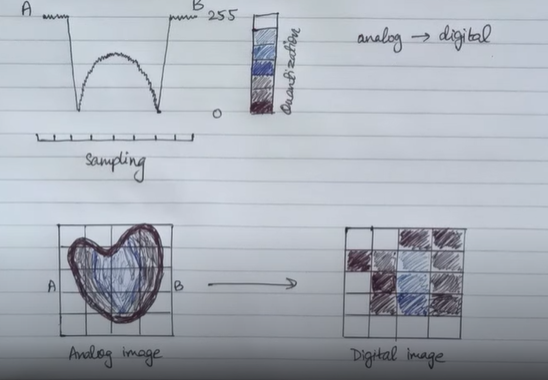 A B 255
Quantization
analog → digital
0
Sampling
A B
Analog image
Digital image